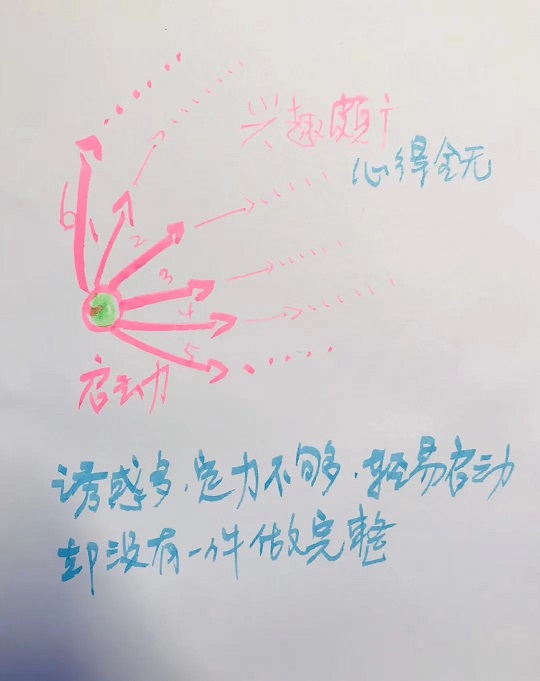 兴趣颇广
心得全无
6
1
2
3
4
5
启动力
诱惑多,定力不够,轻易启动
却没有一件做完整